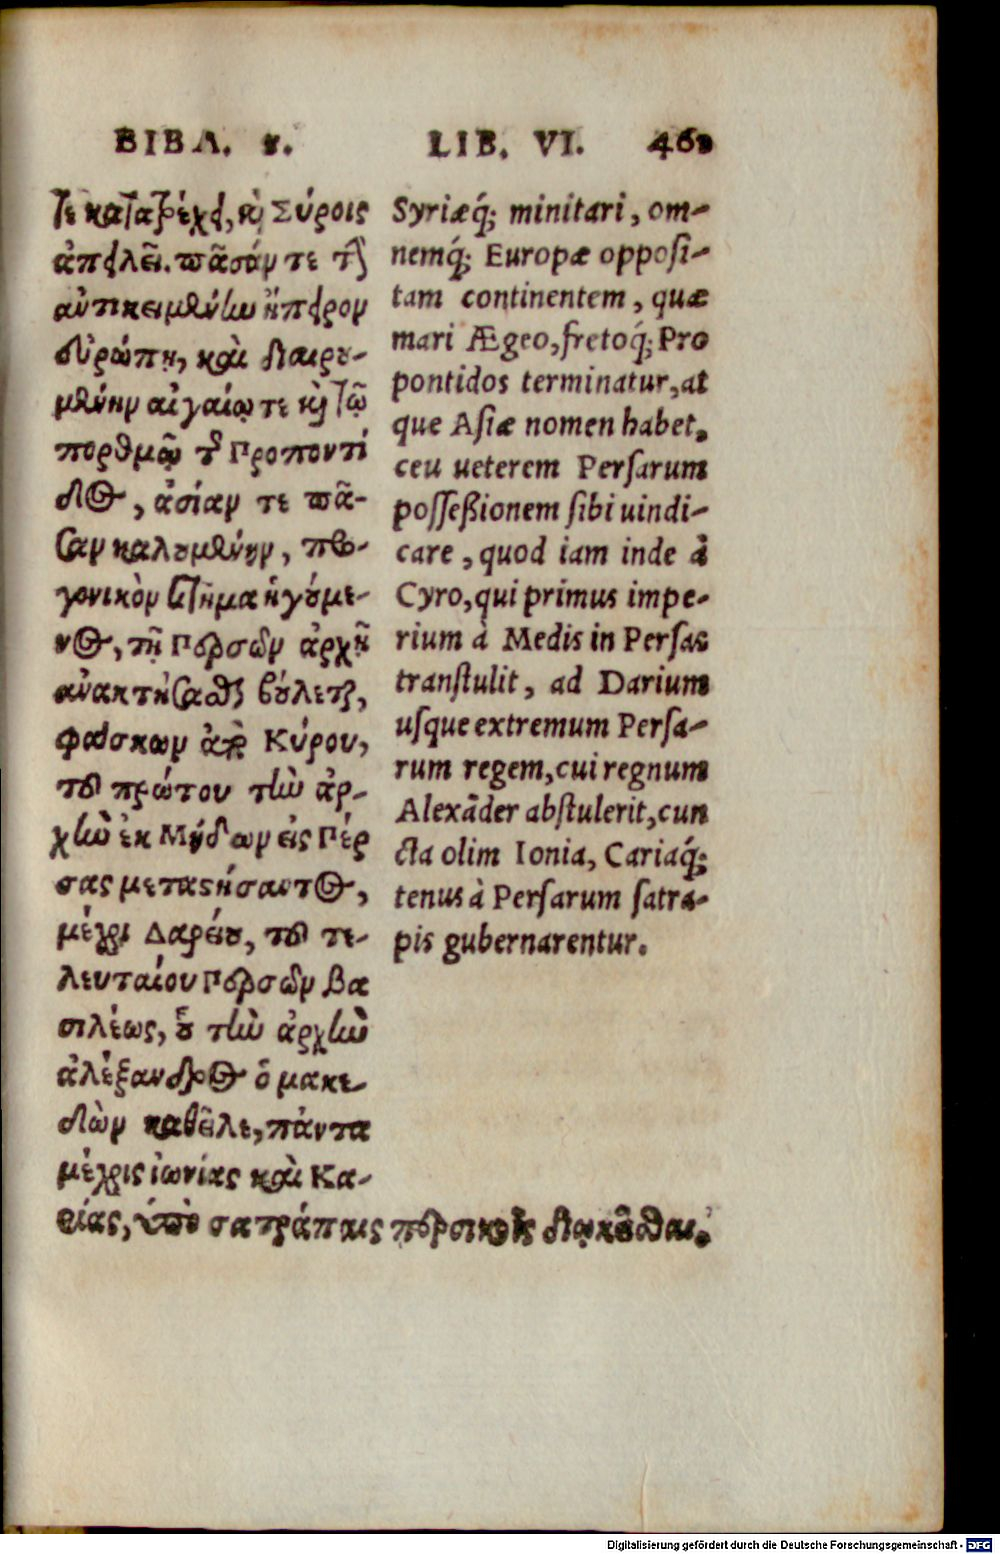 ΒΙΒΛ. ϛ. LIB. VI. 469
τε κατατρέχει, καὶ Σύροις
ἀπειλεῖ. πᾶσάν τε τὴν
ἀντικειμένην ἤπειρον
εὐρώπῃ, καὶ διαιρου-
μένην αἰγαίῳ τε καὶ τῷ
πορθμῷ τῆς Προποντί
δος, ἀσίαν τε πᾶ-
σαν καλουμένην, προ-
γονικὸν κτῆμα ἡγούμε-
νος, τῇ Περσῶν ἀρχῇ
ἀνακτήσασθαι βούλεται,
φάσκων ἀπὸ Κύρου,
τοῦ πρώτου τὴν ἀρ-
χὴν ἐκ Μήδων εἰς Πέρ
σας μεταστήσαντος,
μέχρι Δαρείου, τοῦ τε-
λευταίου Περσῶν βα
σιλέως, οὗ τὴν ἀρχὴν
ἀλέξανδρος ὁ μακε-
δὼν καθεῖλε, πάντα
μέχρις ἰωνίας καὶ Κα-
ρίας, ὑπὸ σατράπαις περσικοῖς διῳκῆσθαι.
Syriæq́; minitari, om-
nemq́; Europæ opposi-
tam continentem, quæ
mari Ægeo, fretoq́; Pro
pontidos terminatur, at
que Asiæ nomen habet,
ceu ueterem Persarum
possessionem sibi uindi-
care, quod iam inde à
Cyro, qui primus impe-
rium à Medis in Persas
transtulit, ad Darium
usque extremum Persa-
rum regem, cui regnum
Alexāder abstulerit, cun
cta olim Ionia, Cariaq́;
tenus à Persarum satra-
pis gubernarentur.
Digitalisierung gefördert durch die Deutsche Forschungsgemeinschaft - DFG